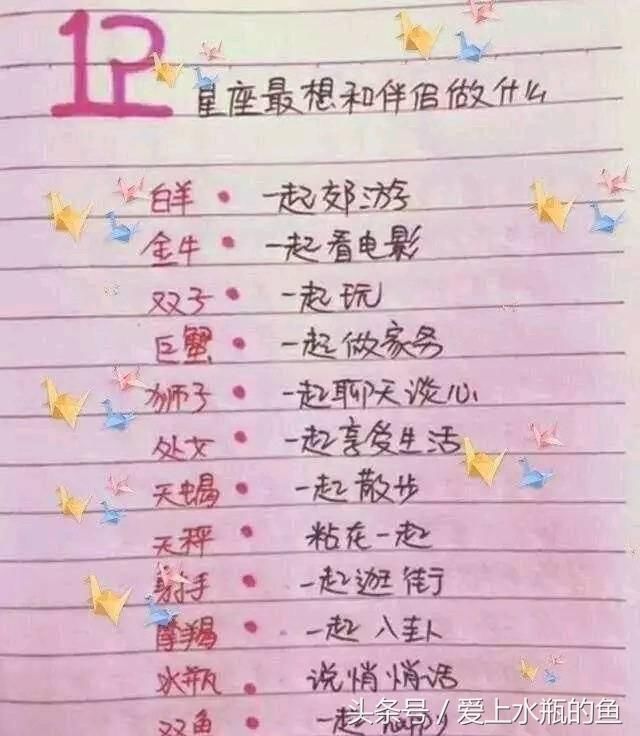 12
星座最想和伴侣做什么
白羊• 一起郊游
金牛• 一起看电影
双子• 一起玩
巨蟹• 一起做家务
狮子• 一起聊天谈心
处女• 一起享爱生活
天蝎• 一起散步
天秤• 粘在一起
射手• 一起逛街
摩羯• 一起八卦
水瓶• 说悄悄话
双鱼• 一起
头条号/爱上水瓶的鱼